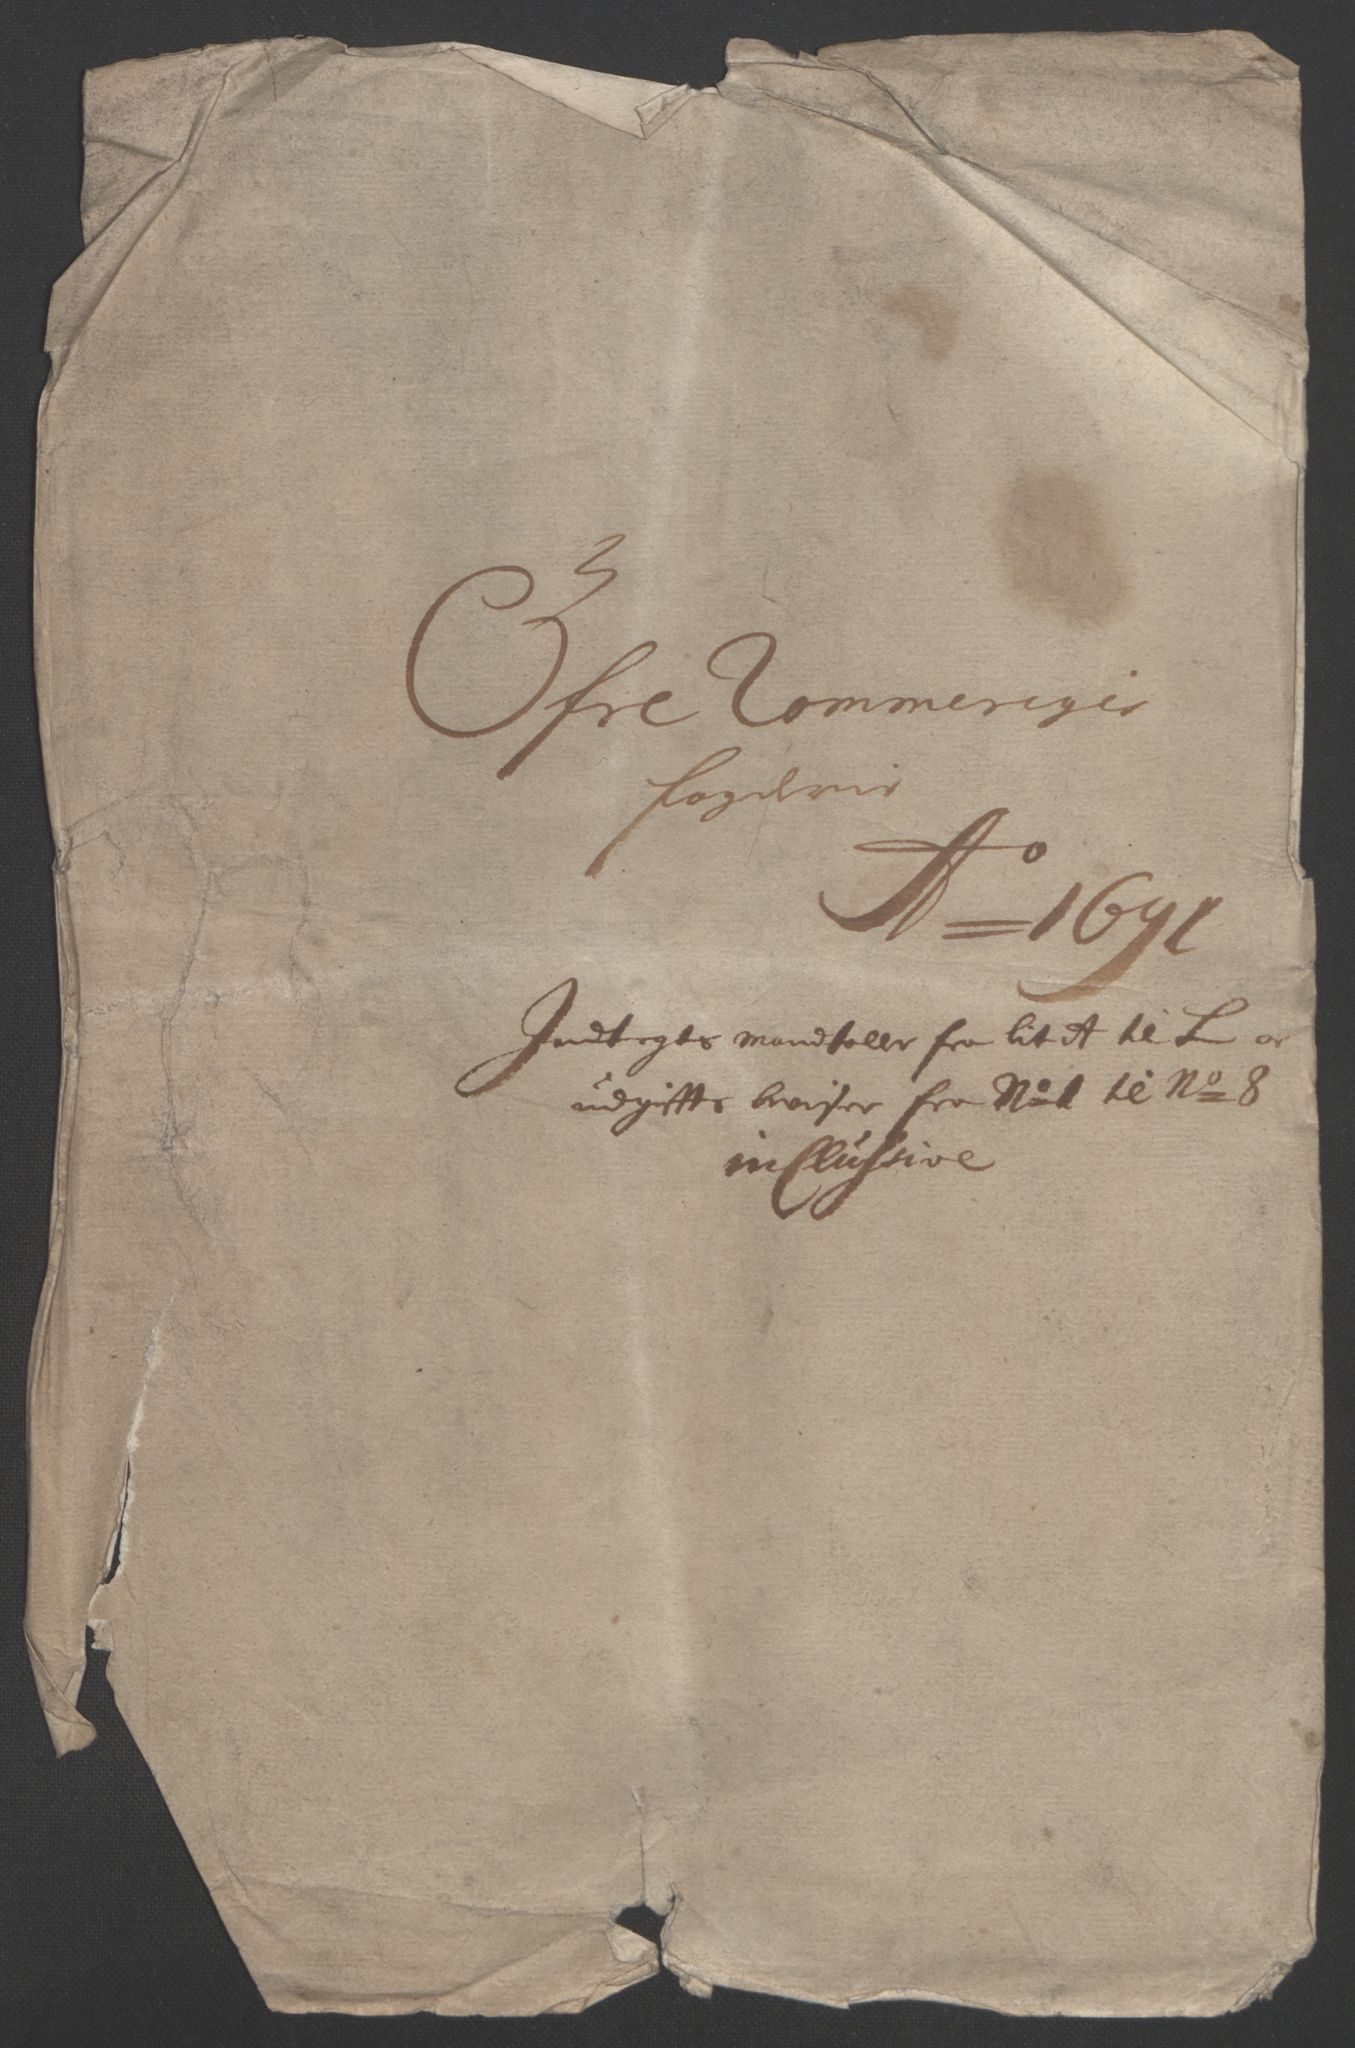 Öfre Rommerigis
fogderie
Ao 1691
Indtegts mandtaller fra lit A til L oc
udgiffts beviser fra No 1 til No 8
inClussive